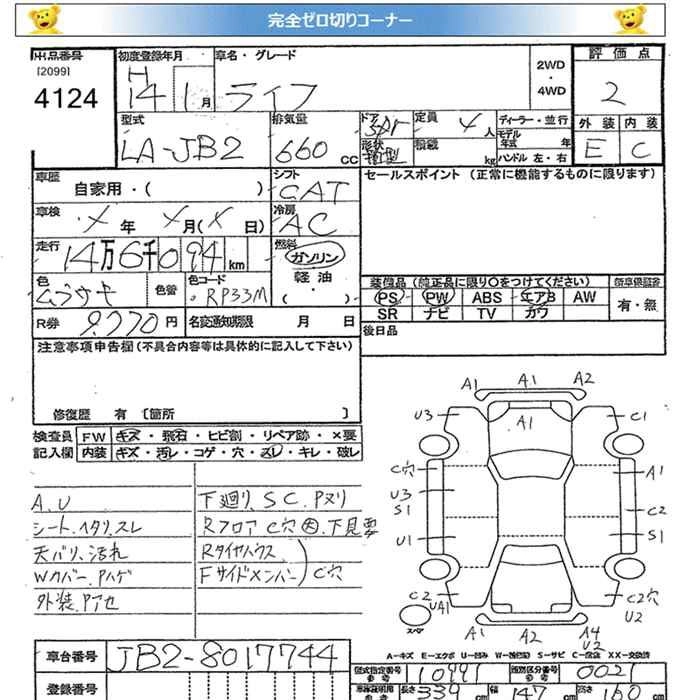 完全ゼロ切りコーナー
出品番号 [2099] 4124
初度登録年月 H14 1月
車名・グレード ライフ
2WD・4WD
評価点 2
外装 内装
E C
型式 LA-JB2
排気量 660 cc
ドア 5Dr
形状 箱型
定員 4人
積載 kg
ディーラー・並行
モデル年式 年
ハンドル 左・右
車歴 自家用・( )
シフト CAT
セールスポイント (正常に機能するものに限ります)
車検 X年 X月(X日)
冷房 AC
走行 14万6千094km
燃料 ガソリン
軽油・( )
色 ムラサキ
色替
色コード RP33M
装備品(純正長に限り〇をつけてください)
PS PW ABS エアB AW
SR ナビ TV カワ
新車保証書 有・無
R券 9,770円
名変通知期限 月 日
後日品
注意事項申告欄(不具合内容等は具体的に記入して下さい)
修復歴 有 [箇所 ]
検査員記入欄
FW キズ・飛石・ヒビ割・リペア跡・×要
内装 キズ・汚レ・コゲ・穴・スレ・キレ・破レ
A,U
シート、ヘタリ、スレ
天バリ、汚れ
Wカバー、Pハゲ
外装、Pアセ
下廻り、SC、Pヌリ
Rフロア C穴 大 下見要
Rタイヤハウス
Fサイドメンバー
C穴
A1 A1 A2
U3 A1 C1
C穴 A1
U3
S1 C2
U1 S1
C2 C2穴
UA1 U2
スペア
A1 A2 A4
U2
A-キズ E-エクボ U-凹み W-補修跡 S-サビ C-腐食 XX-交換済
車台番号 JB2-8017744
登録番号
型式指定番号 10991
類別区分番号 0021
長さ 339 cm 幅 147 cm 高さ 160 cm